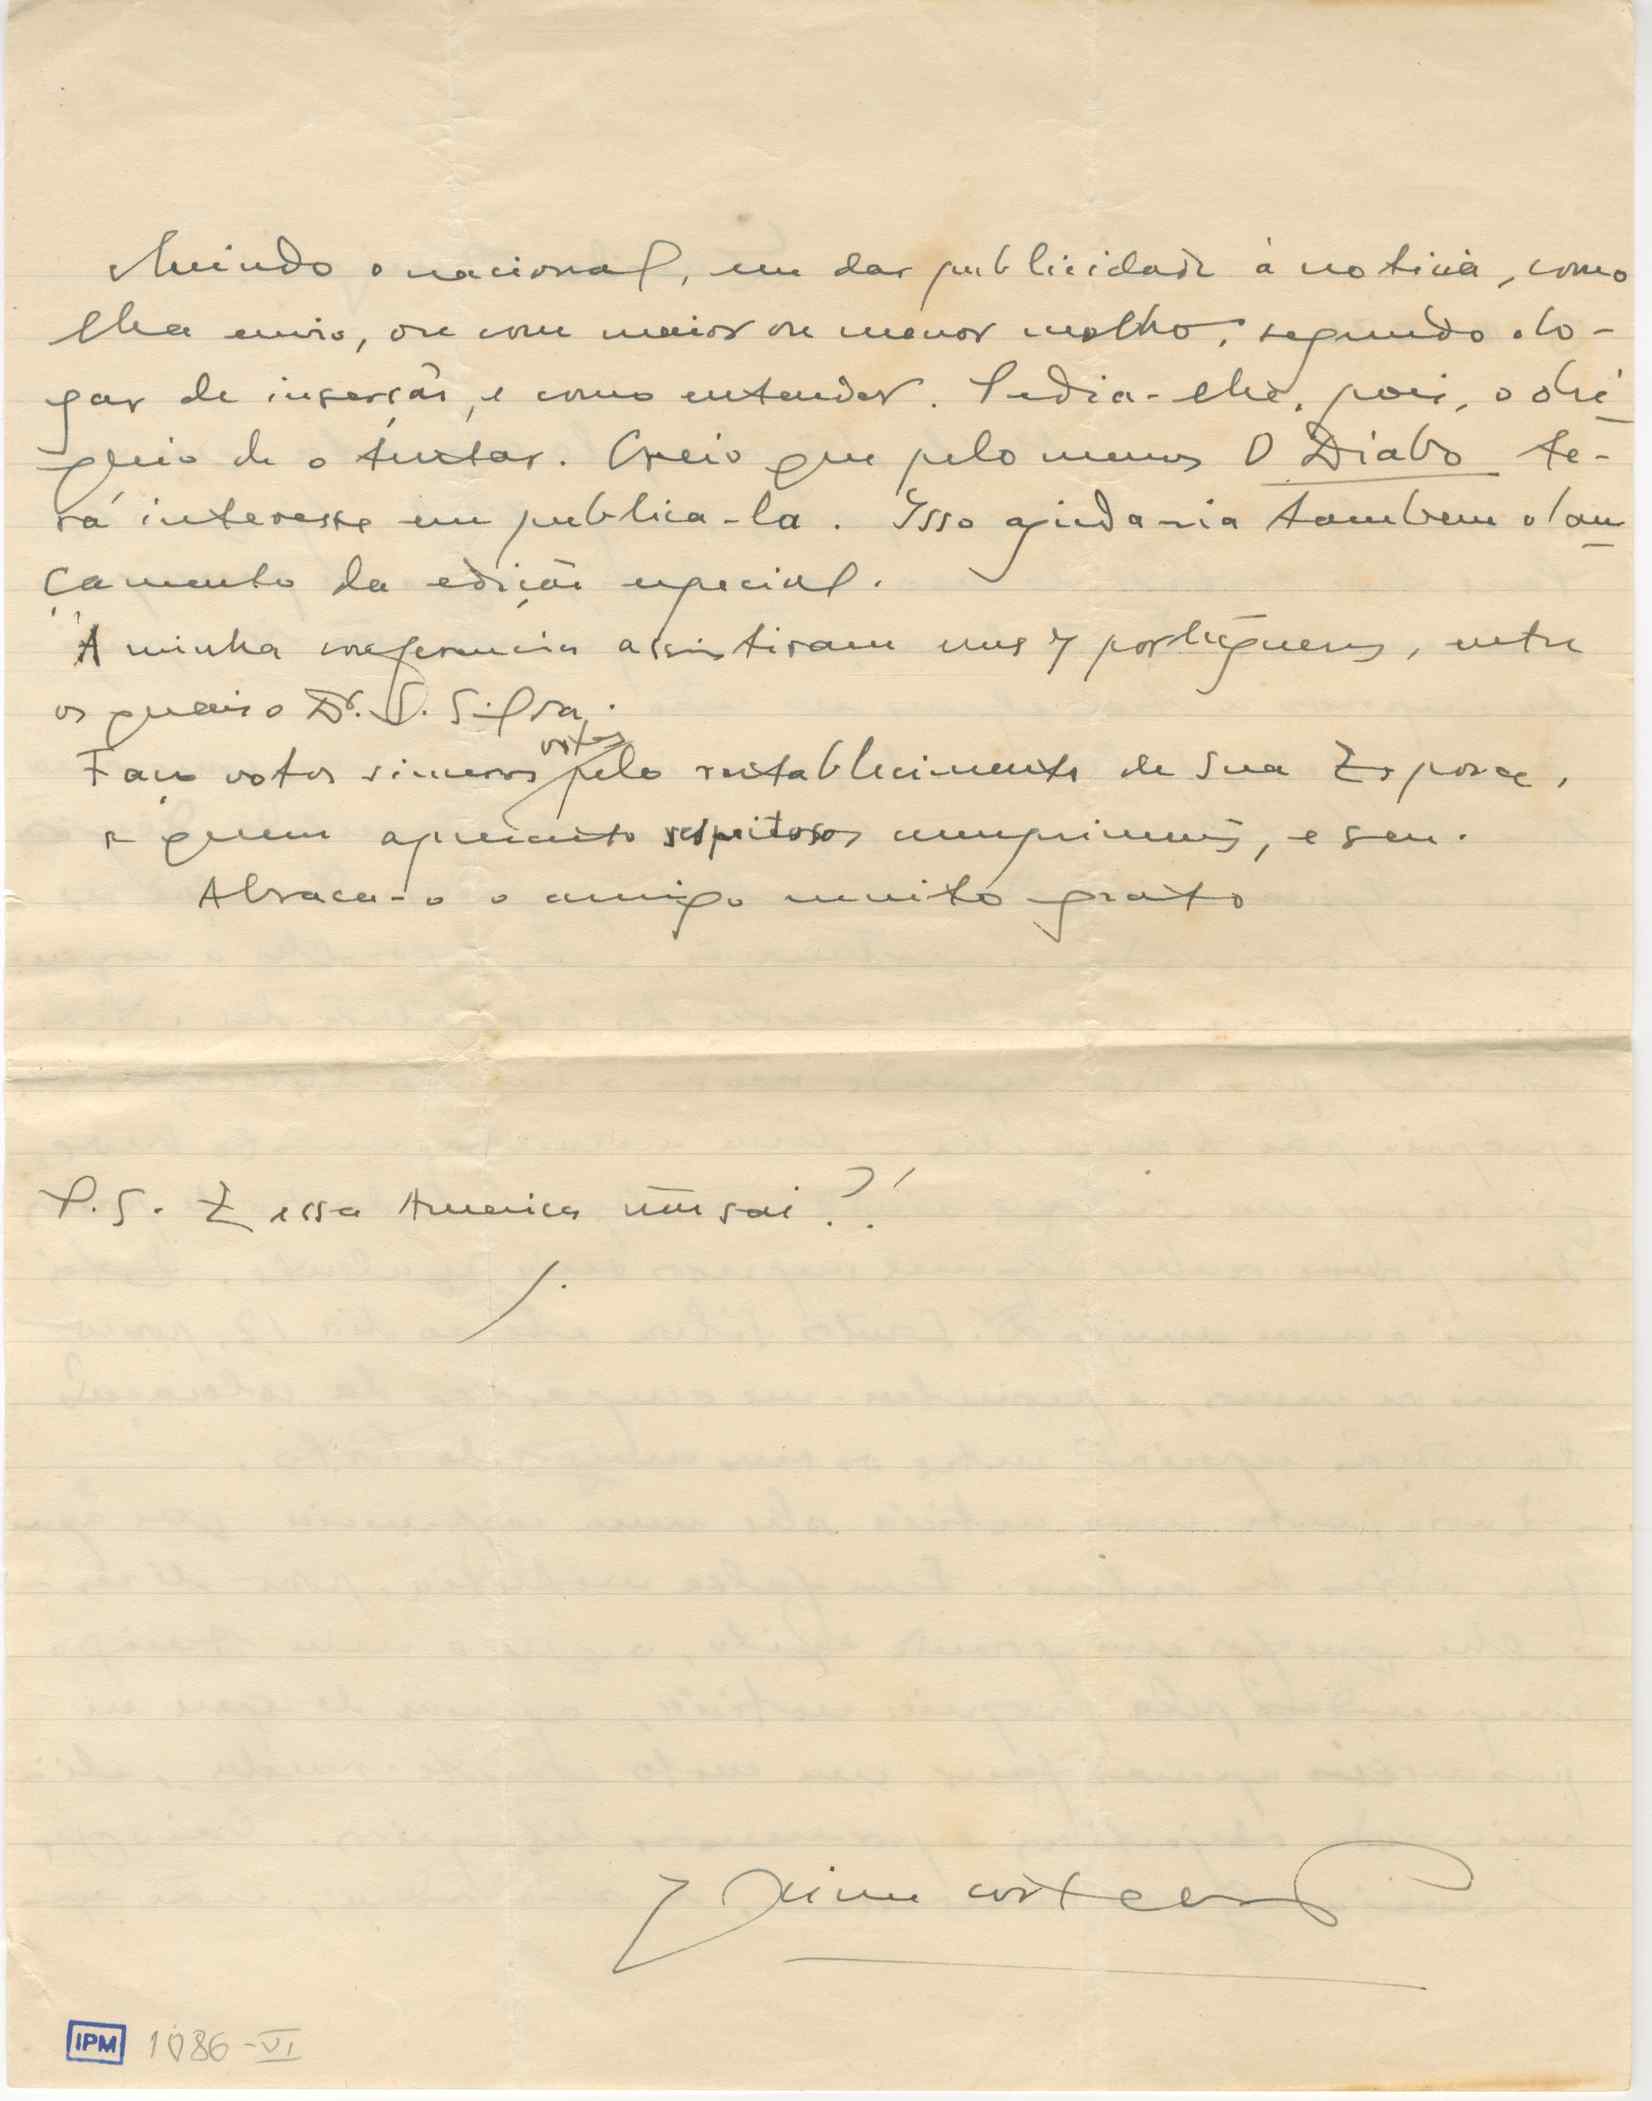 cluindo o nacional, em dar publicidade á noticia, como
lha envio, ou com maior ou menor molho, segundo o lo-
gar de inserção, e como entender. Pedia-lhe, pois, o obsé-
quio de o tentar. Creio que pelo menos O Diabo te-
rá interesse em publica-la. Isso ajudaria tambem o lan-
çamento da edição especial.
Á minha conferencia assistiram uns 7 portugueses, entre
os quais o Dr. S. Silva.
votos
Faço votos sinceros pelo restablecimento de Sua Esposa,
a quem apresento respeitosos cumprimentos, e seu.
Abraça-o o amigo muito grato
P.S. E essa America não sai?!
J.
Jaime Cortesão
IPM 1086-VI